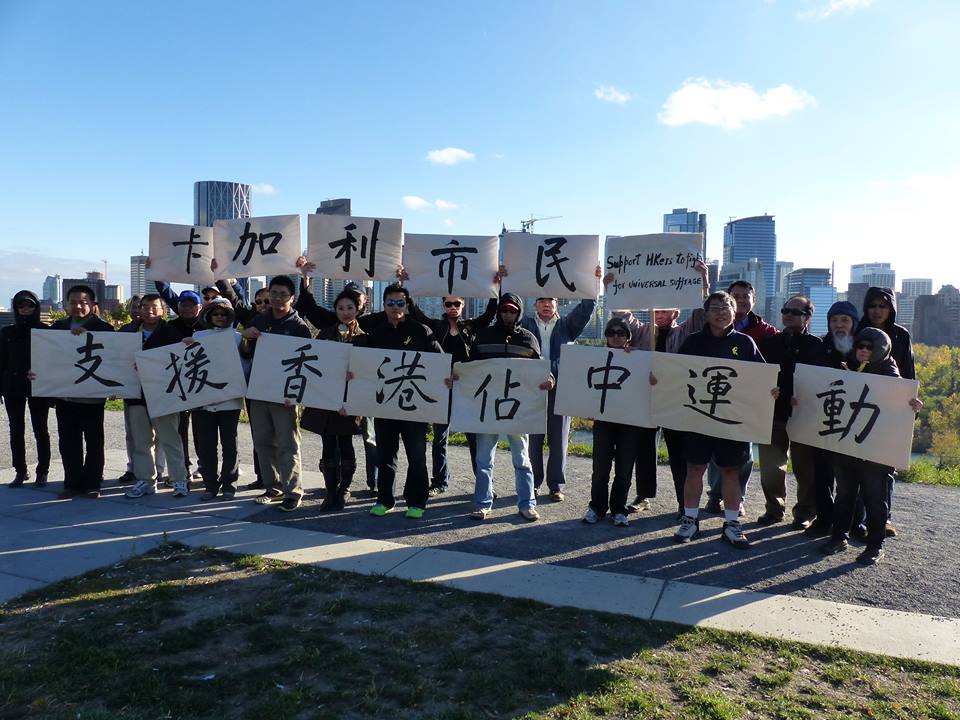 卡加利市民
Support HKers to fight
for UNIVERSAL SUFFRAGE
支援香港佔中運動